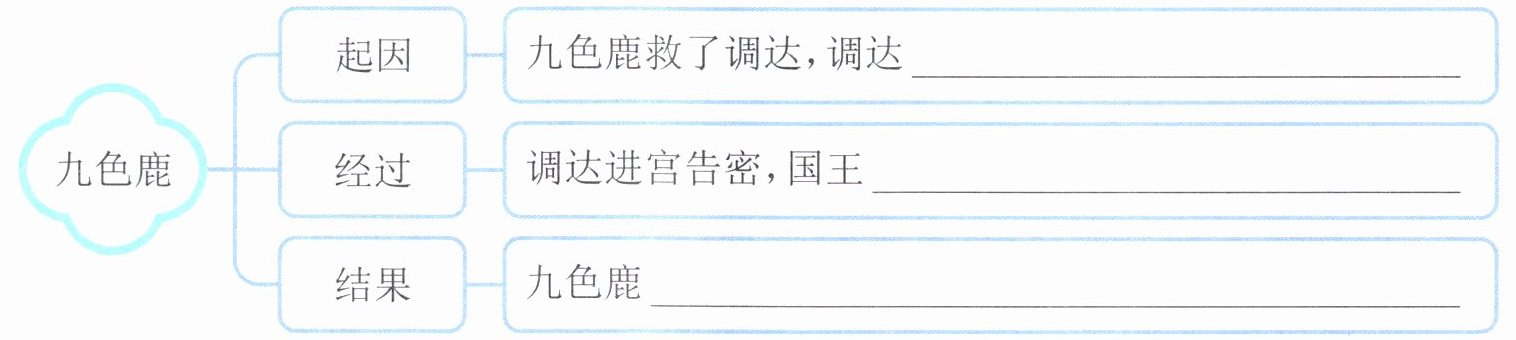 九色鹿
起因
九色鹿救了调达,调达
经过
调达进宫告密,国王
结果
九色鹿